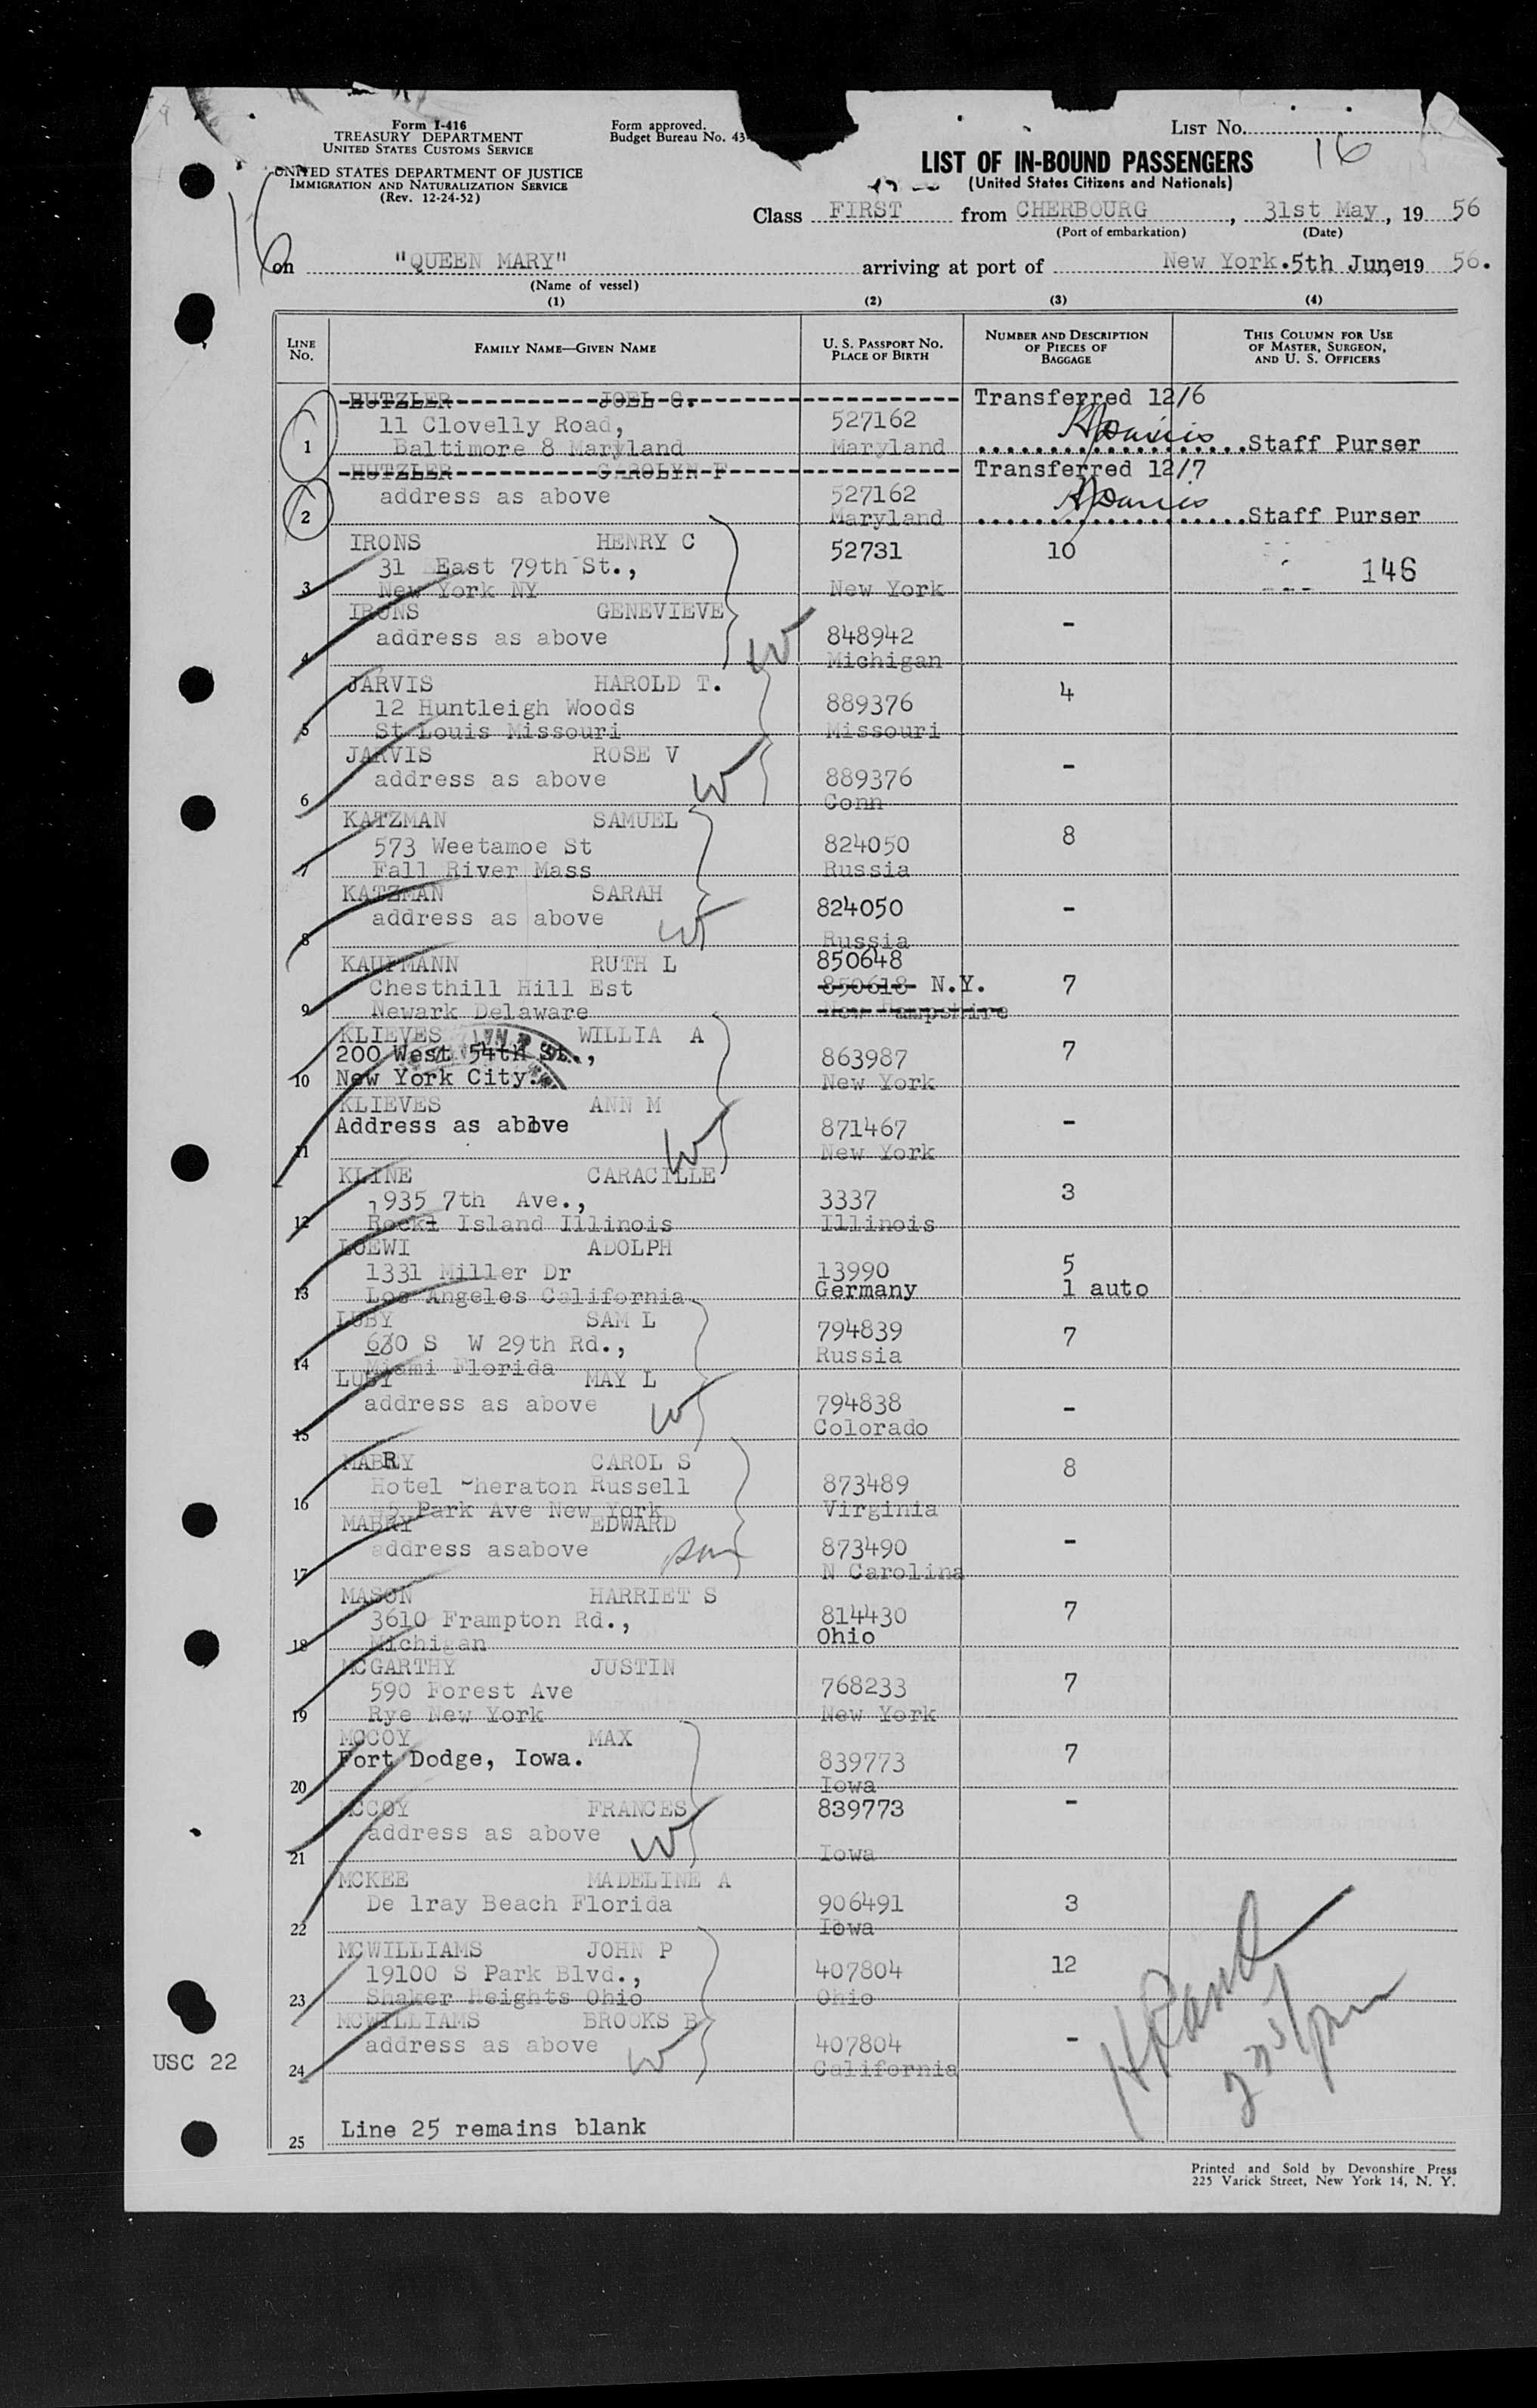 Form I-416
TREASURY DEPARTMENT
UNITED STATES CUSTOMS SERVICE
UNITED STATES DEPARTMENT OF JUSTICE
IMMIGRATION AND NATURALIZATION SERVICE
(Rev. 12-24-52)
Form approved.
Budget Bureau No. 43-
LIST NO.
16
LIST OF IN-BOUND PASSENGERS
(United States Citizens and Nationals)
16
Class FIRST from CHERBOURG, 31st May, 19 56
(Port of embarkation) (Date)
on "QUEEN MARY" arriving at port of New York. 5th June, 19 56.
(Name of vessel)
(1) (2) (3) (4)
LINE NO. FAMILY NAME—GIVEN NAME U. S. PASSPORT NO. PLACE OF BIRTH NUMBER AND DESCRIPTION OF PIECES OF BAGGAGE THIS COLUMN FOR USE OF MASTER, SURGEON, AND U. S. OFFICERS
HUTZLER JOEL G. Transferred 12/6
11 Clovelly Road, 527162
1 Baltimore 8 Maryland Maryland Staff Purser
HUTZLER CAROLYN F Transferred 12/7
address as above 527162
2 Maryland Staff Purser
IRONS HENRY C 52731 10
31 East 79th St., 146
3 New York NY New York
IRONS GENEVIEVE -
address as above W 848942
4 Michigan
JARVIS HAROLD T. 4
12 Huntleigh Woods 889376
5 St Louis Missouri Missouri
JARVIS ROSE V -
address as above W 889376
6 Conn
KATZMAN SAMUEL 8
573 Weetamoe St 824050
7 Fall River Mass Russia
KATZMAN SARAH 824050 -
address as above W
8 Russia
KAUFMANN RUTH L 850648
Chesthill Hill Est 850618 N.Y. 7
9 Newark Delaware New Hampshire
KLIEVES WILLIA A 7
200 West 54th St., 863987
10 New York City. New York
KLIEVES ANN M -
Address as above 871467
11 W New York
KLINE CARACILLE 3
1935 7th Ave., 3337
12 Rock Island Illinois Illinois
LOEWI ADOLPH 5
1331 Miller Dr 13990
13 Los Angeles California Germany 1 auto
LUBY SAM L 794839 7
630 S W 29th Rd., Russia
14 Miami Florida
LUBY MAY L 794838 -
address as above W Colorado
15
MABRY CAROL S 8
Hotel heraton Russell 873489
16 45 Park Ave New York Virginia
MABRY EDWARD -
address asabove son 873490
17 N Carolina
MASON HARRIET S 7
3610 Frampton Rd., 814430
18 Michigan Ohio
MCGARTHY JUSTIN 7
590 Forest Ave 768233
19 Rye New York New York
MCCOY MAX 7
Fort Dodge, Iowa. 839773
20 Iowa
MCCOY FRANCES 839773 -
address as above W
21 Iowa
MCKEE MADELINE A
De lray Beach Florida 906491 3
22 Iowa
MCWILLIAMS JOHN P 12
19100 S Park Blvd., 407804
23 Shaker Heights Ohio Ohio
MCWILLIAMS BROOKS B
address as above W 407804 -
24 California
USC 22
25 Line 25 remains blank
Printed and Sold by Devonshire Press
225 Varick Street, New York 14, N. Y.